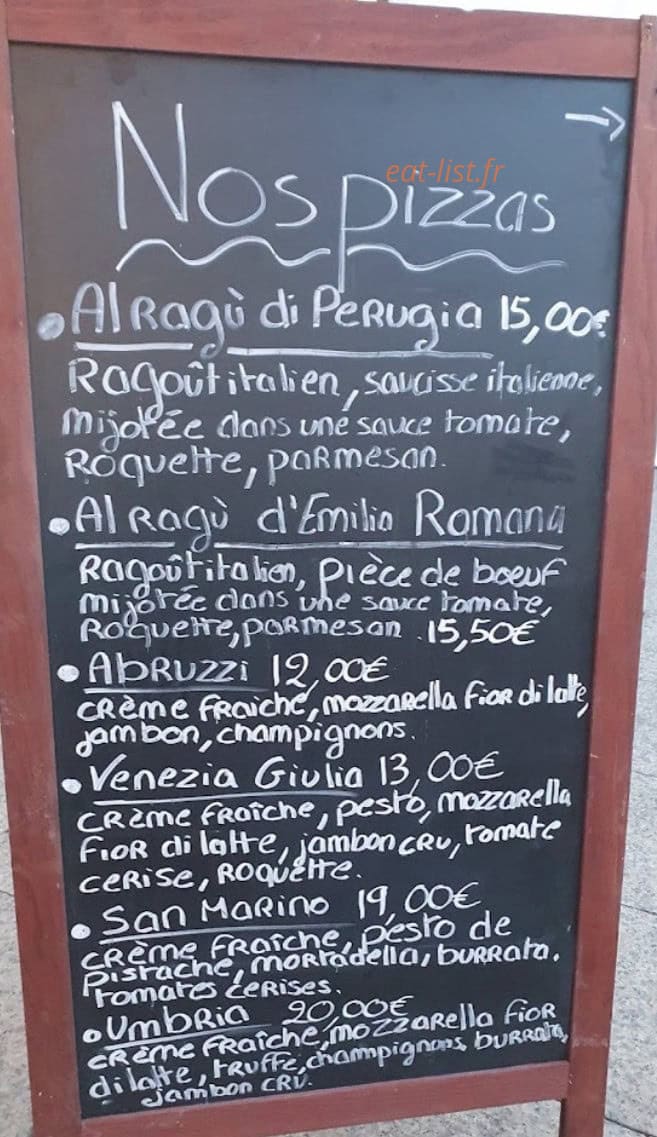 eat-list.fr
Nos pizzas
Al Ragù di Perugia 15,00€
Ragoût italien, saucisse italienne,
mijotée dans une sauce tomate,
Roquette, parmesan.
Al Ragù d'Emilia Romana
Ragoût italien, pièce de boeuf
mijotée dans une sauce tomate,
Roquette, parmesan. 15,50€
Abruzzi 12,00€
crème fraiche, mozzarella fior di latte,
jambon, champignons.
Venezia Giulia 13,00€
crème fraîche, pesto, mozzarella
fior di latte, jambon cru, tomate
cerise, roquette.
San Marino 19,00€
crème fraîche, pesto de
pistache, mortadella, burrata.
tomates cerises.
Umbria 20,00€
crème fraîche, mozzarella fior
di latte, truffe, champignons, burrata,
jambon cru.